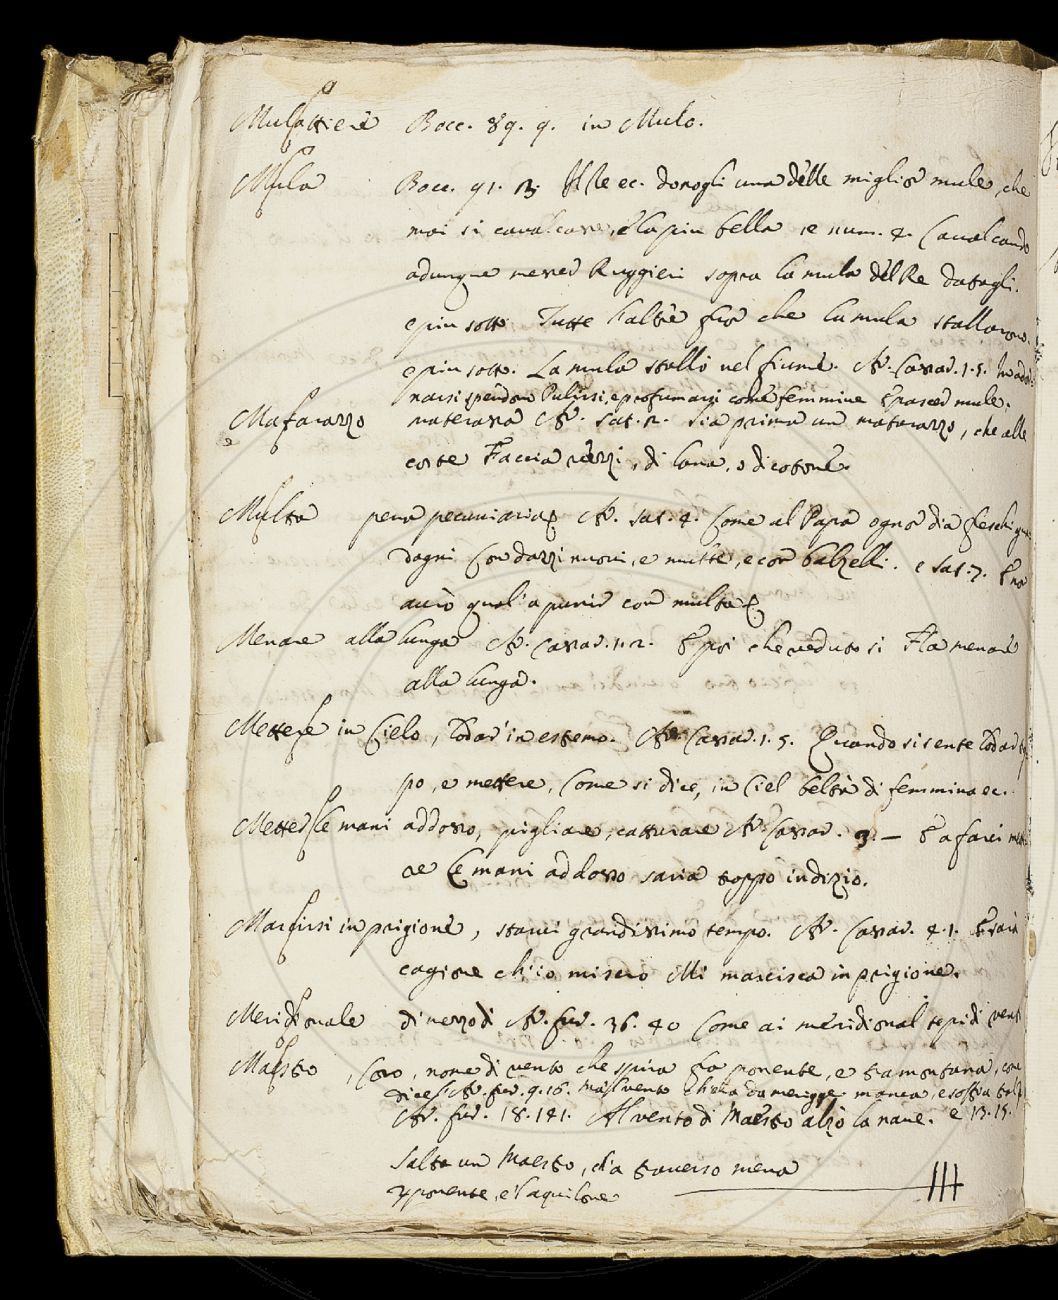 Mulattiere Bocc. 89. 9. in Mulo.
Mula Bocc. 91. Il Re ec. donogli una delle miglior mule, che
mai si cavalcasse, e la piu bella, e num. 4. Cavalcando
adunque messer Ruggieri sopra la mula del Re datagli.
e piu sotto Tutte l'altre fuor che la mula stallarono.
e piu sotto. La mula stallò nel fiume. Ar. Cassar. 1. 5.
Pulirsi, e profumarsi come femmine mule.
Matarazzo materassa Ar. Sat. 2. Sia prima un matarazzo, che alle
coste Faccia vezzi, di lana, o di cotone.
Multa pena pecuniaria Ar. Sat. 4. Come al Papa ognor dia freschi gua
dagni Con dazzi nuovi, e multe, e con balzelli. e Sat. 7.
a punir con multa
Menare alla lunga Ar. Cassar. 1. 2. E poi che veduto si Ha menare
alla lunga.
Mettere in Cielo, lodar' in estremo. Ar. Cassar. 1. 5. Quando si sente lodar
po, e mettere, come si dice, in Ciel beltà di femmina ec.
Metter le mani addosso, pigliare, catturare Ar. Cassar. 3. — E a farci
re le mani addosso saria troppo indizio.
Marcirsi in prigione, starvi grandissimo tempo. Ar. Cassar. 4. 1.
cagione ch'io misero Mi marcisca in prigione.
Meridionale di mezzodì Ar. fur. 36. 40 Come ai meridional tepidi venti
Maestro, Coro, nome di vento che spira fra ponente, e tramontana, come
dice Ar. fur. 9. 16.
Ar. fur. 18. 141. Al vento di Maestro alzò la nave. e 13. 15.
Salta un Maestro, ch'a traverso mena
ponente, e l'aquilone